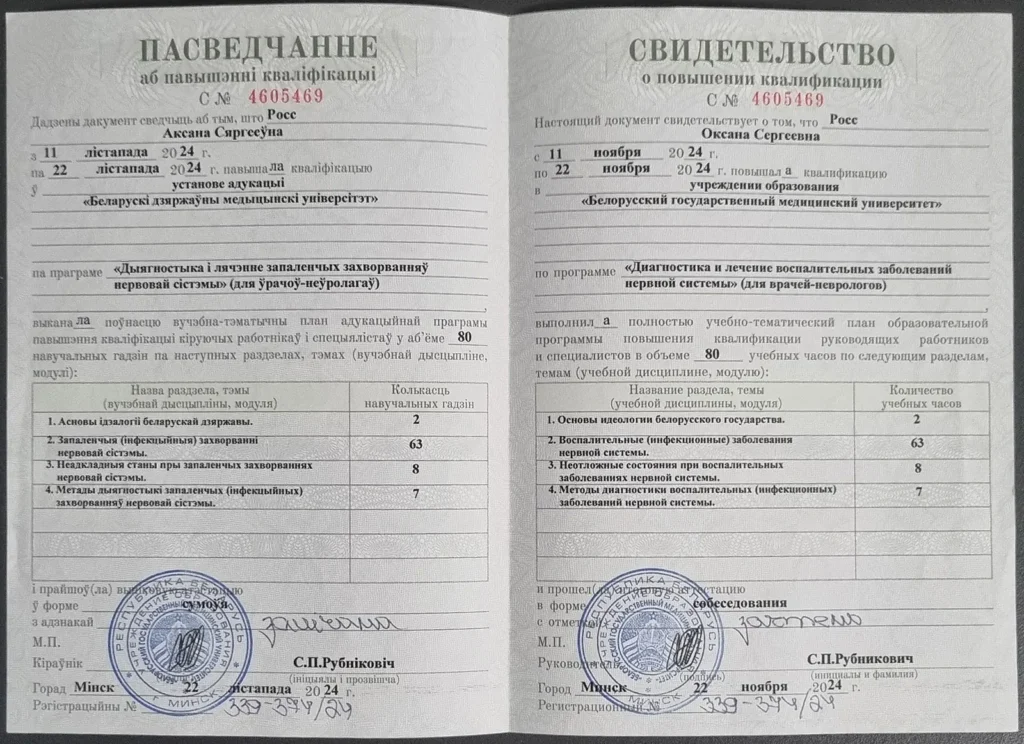 ПАСВЕДЧАННЕ
аб павышэнні кваліфікацыі
С № 4605469
Дадзены дакумент сведчыць аб тым, што Росс
Аксана Сяргееўна
з 11 лістапада 2024 г.
па 22 лістапада 2024 г. павышала кваліфікацыю
ў установе адукацыі
«Беларускі дзяржаўны медыцынскі універсітэт»
па праграме «Дыягностыка і лячэнне запаленчых захворванняў
нервовай сістэмы» (для ўрачоў-неўролагаў)
выканала поўнасцю вучэбна-тэматычны план адукацыйнай праграмы
павышэння кваліфікацыі кіруючых работнікаў і спецыялістаў у аб'ёме 80
навучальных гадзін па наступных раздзелах, тэмах (вучэбнай дысцыпліне,
модулі):
Назва раздзела, тэмы
(вучэбнай дысцыпліны, модуля)
Колькасць
навучальных гадзін
1. Асновы ідэалогіі беларускай дзяржавы. 2
2. Запаленчыя (інфекцыйныя) захворванні
нервовай сістэмы. 63
3. Неадкладныя станы пры запаленчых захворваннях
нервовай сістэмы. 8
4. Метады дыягностыкі запаленчых (інфекцыйных)
захворванняў нервовай сістэмы. 7
і прайшоў(ла)
ў форме сумоўя
з адзнакай залічана
М.П.
Кіраўнік С.П.Рубніковіч
(ініцыялы і прозвішча)
Горад Мінск 22 лістапада 2024 г.
Рэгістрацыйны № 339-374/24
РЕСПУБЛИКА БЕЛАРУСЬ
УЧРЕЖДЕНИЕ ОБРАЗОВАНИЯ
г. МИНСК
СВИДЕТЕЛЬСТВО
о повышении квалификации
С № 4605469
Настоящий документ свидетельствует о том, что Росс
Оксана Сергеевна
с 11 ноября 2024 г.
по 22 ноября 2024 г. повышала квалификацию
в учреждении образования
«Белорусский государственный медицинский университет»
по программе «Диагностика и лечение воспалительных заболеваний
нервной системы» (для врачей-неврологов)
выполнила полностью учебно-тематический план образовательной
программы повышения квалификации руководящих работников
и специалистов в объеме 80 учебных часов по следующим разделам,
темам (учебной дисциплине, модулю):
Название раздела, темы
(учебной дисциплины, модуля)
Количество
учебных часов
1. Основы идеологии белорусского государства. 2
2. Воспалительные (инфекционные) заболевания
нервной системы. 63
3. Неотложные состояния при воспалительных
заболеваниях нервной системы. 8
4. Методы диагностики воспалительных (инфекционных)
заболеваний нервной системы. 7
и прошел(
в форме собеседования
с отметкой зачтено
М.П.
Руководитель С.П.Рубникович
(подпись) (инициалы и фамилия)
Город Минск 22 ноября 2024 г.
Регистрационный № 339-374/24
РЕСПУБЛИКА БЕЛАРУСЬ
УЧРЕЖДЕНИЕ ОБРАЗОВАНИЯ
г. МИНСК